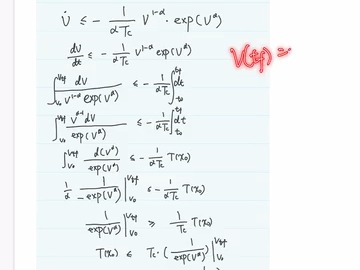 V̇ ≤ - 1/(αTc) V^(1-α) · exp(V^α)
V(tf) =
dV/dt ≤ - 1/(αTc) V^(1-α) exp(V^α)
∫_{V0}^{Vtf} dV/(V^(1-α) exp(V^α)) ≤ - 1/(αTc) ∫_{t0}^{tf} dt
∫_{V0}^{Vtf} V^(α-1) dV/exp(V^α) ≤ - 1/(αTc) ∫_{t0}^{tf} dt
∫_{V0}^{Vtf} d(V^α)/exp(V^α) ≤ - 1/(αTc) T(x0)
1/α · 1/(-exp(V^α)) |_{V0}^{Vtf} ≤ - 1/(αTc) T(x0)
1/exp(V^α) |_{V0}^{Vtf} ≥ 1/Tc T(x0)
T(x0) ≤ Tc · (1/exp(V^α)) |_{V0}^{Vtf}